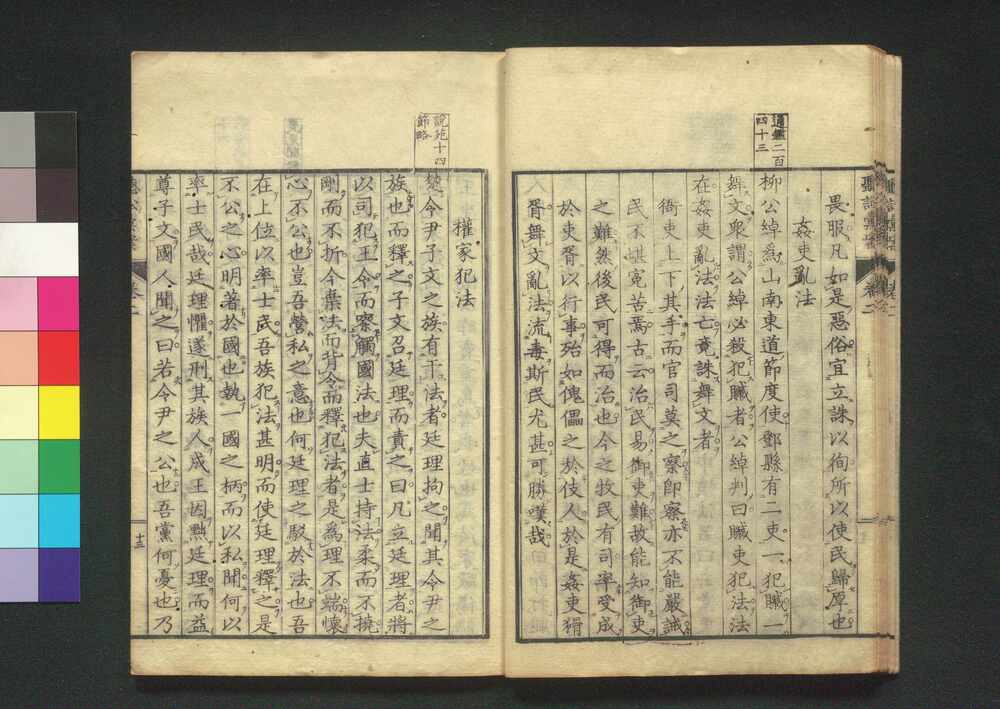 畏服凡如是惡俗宜立誅以徇所以使民歸厚也
姦吏亂法
通鑑二百
四十三
柳公綽爲山南東道節度使鄧縣有二吏一犯贓一
舞文衆謂公綽必殺犯贓者公綽判曰贓吏犯法法
在姦吏亂法法亡竟誅舞文者
衙吏上下其手而官司莫之察卽察亦不能嚴誡
民不堪寃苦焉古云治民易御吏難故能知御吏
之難然後民可得而治也今之牧民有司率受成
於吏胥以行事殆如傀儡之於伎人於是姦吏猾
胥舞文亂法流毒斯民尤甚可勝嘆哉
權家犯法
說苑十四
節略
楚令尹子文之族有干法者廷理拘之聞其令尹之
族也而釋之子文召廷理而責之曰凡立廷理者將
以司犯王令而察觸國法也夫直士持法柔而不撓
剛而不折今棄法而背令而釋犯法者是爲理不端懷
心不公也豈吾營私之意也何廷理之駁於法也吾
在上位以率士民吾族犯法甚明而使廷理釋之是
不公之心明著於國也執一國之柄而以私聞何以
率士民哉廷理懼遂刑其族人成王因黜廷理而益
尊子文國人聞之曰若令尹之公也吾黨何憂也乃
十三